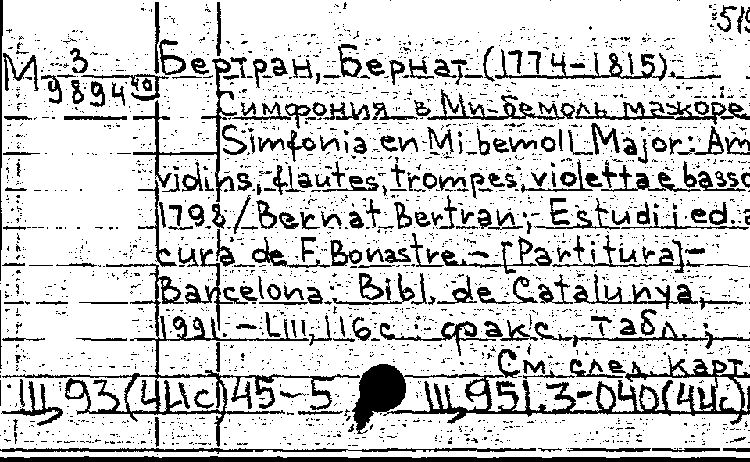 519
М 3
9894 40
Бертран, Бернат (1774-1815).
Симфония в Ми-бемоль мажоре
Simfonia en Mi bemoll Major: Am
violins, flautes, trompes, violetta e basso
1798/Bernat Bertran; Estudi i ed. a
cura de F. Bonastre. - [Partitura]-
Barcelona: Bibl. de Catalunya,
1991. - LIII, 116 с : факс., табл. ;
См. след. карт.
Щ93(4Ис)45-5 Щ951.3-040(4Ис)